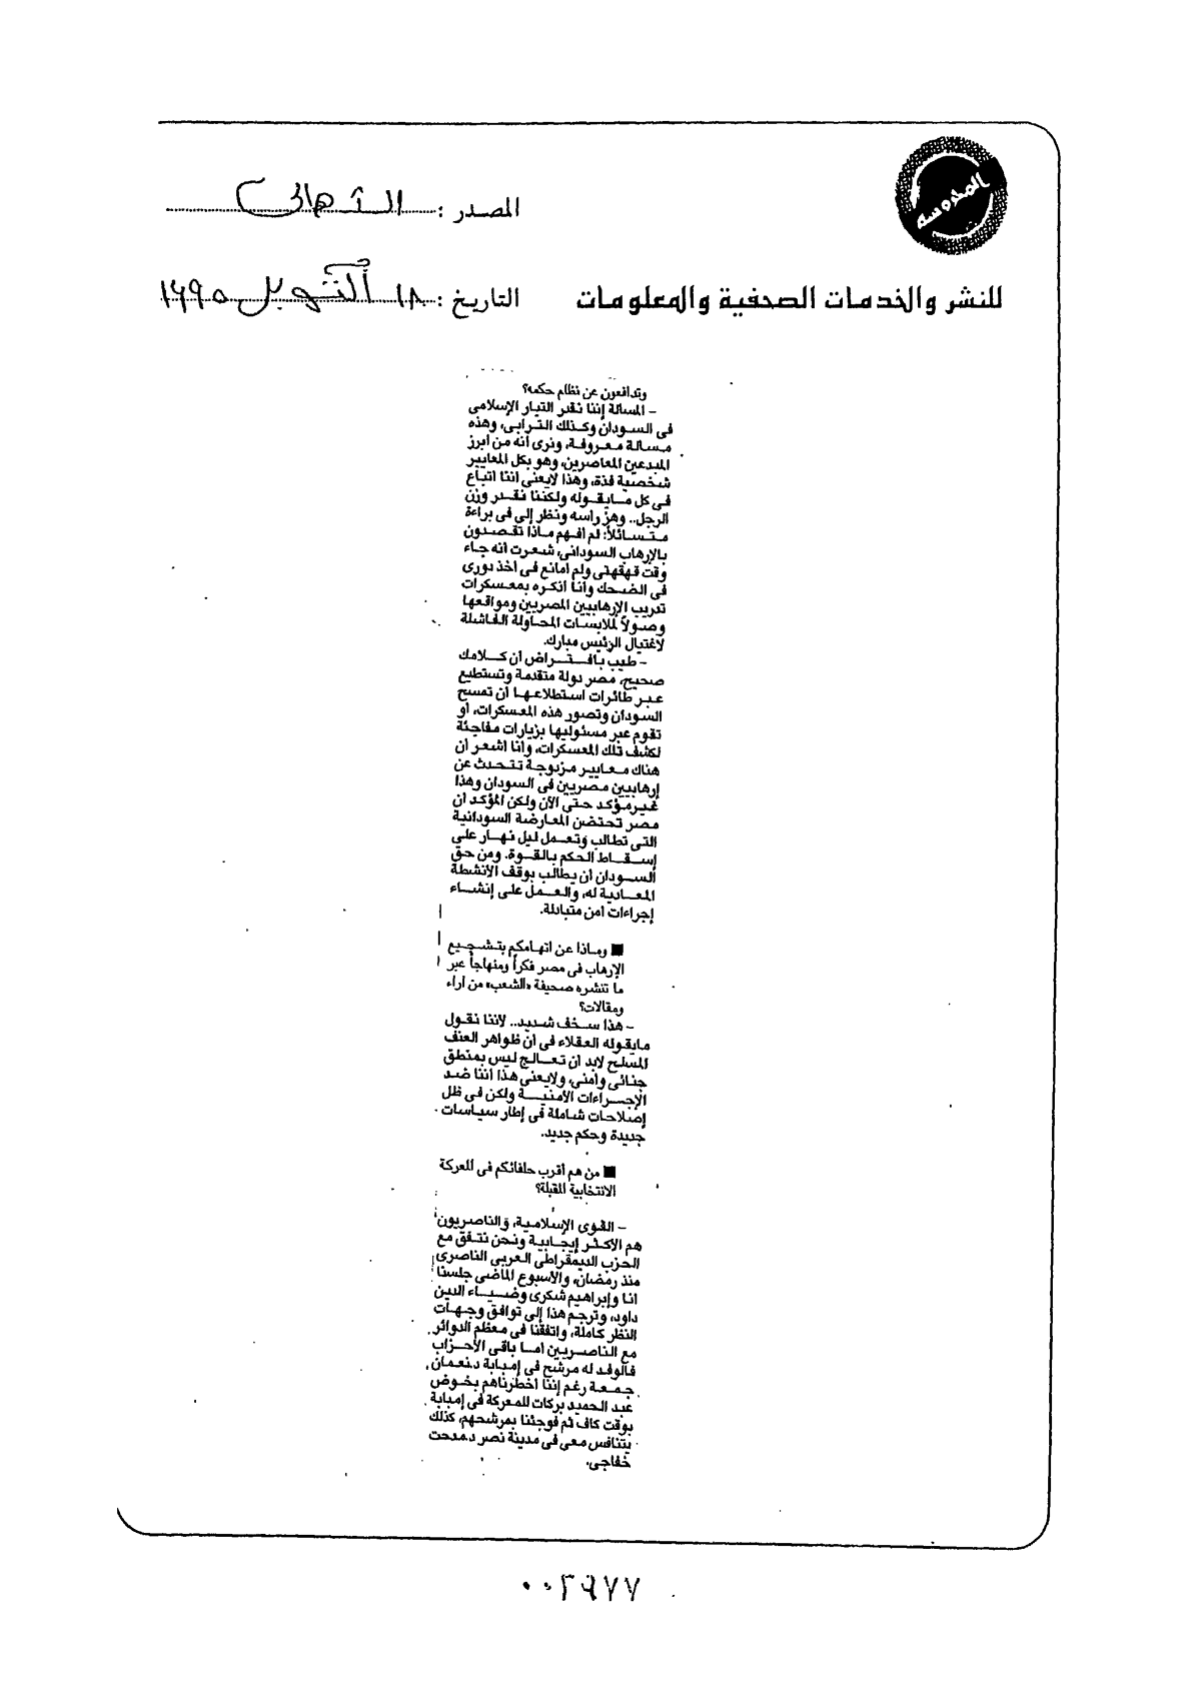 المدروسة
المصدر : الأهالى
للنشر والخدمات الصحفية والمعلومات
التاريخ : ١٨ أكتوبر ١٩٩٥
وتدافعون عن نظام حكمه؟
– المسالة إننا نقدر التيار الإسلامى
فى السودان وكذلك الترابى، وهذه
مسالة معروفة، ونرى أنه من ابرز
المبدعين المعاصرين، وهو بكل المعايير
شخصية فذة، وهذا لايعنى اننا اتباع
فى كل مايقوله ولكننا نقدر وزن
الرجل.. وهز راسه ونظر إلى فى براءة
متسائلاً: لم افهم ماذا تقصدون
بالإرهاب السودانى، شعرت انه جاء
وقت قهقهتى ولم امانع فى اخذ دورى
فى الضحك وانا اذكره بمعسكرات
تدريب الإرهابيين المصريين ومواقعها
وصولاً لملابسات المحاولة الفاشلة
لاغتيال الرئيس مبارك.
– طيب بافتراض ان كلامك
صحيح، مصر دولة متقدمة وتستطيع
عبر طائرات استطلاعها ان تمسح
السودان وتصور هذه المعسكرات، أو
تقوم عبر مسئوليها بزيارات مفاجئة
لكشف تلك المعسكرات، وانا اشعر ان
هناك معايير مزدوجة تتحدث عن
إرهابيين مصريين فى السودان وهذا
غيرمؤكد حتى الآن ولكن المؤكد ان
مصر تحتضن المعارضة السودانية
التى تطالب وتعمل ليل نهار على
إسقاط الحكم بالقوة. ومن حق
السودان ان يطالب بوقف الأنشطة
المعادية له، والعمل على إنشاء
إجراءات امن متبادلة.
■ وماذا عن اتهامكم بتشجيع
الإرهاب فى مصر فكراً ومنهاجاً عبر
ما تنشره صحيفة «الشعب» من اراء
ومقالات؟
– هذا سخف شديد.. لأننا نقول
مايقوله العقلاء فى ان ظواهر العنف
المسلح لابد ان تعالج ليس بمنطق
جنائى وامنى، ولايعنى هذا اننا ضد
الإجراءات الأمنية ولكن فى ظل
إصلاحات شاملة فى إطار سياسات
جديدة وحكم جديد.
■ من هم أقرب حلفائكم فى المعركة
الانتخابية المقبلة؟
– القوى الإسلامية، والناصريون
هم الأكثر إيجابية ونحن نتفق مع
الحزب الديمقراطى العربى الناصرى
منذ رمضان، والأسبوع الماضى جلسنا
انا وإبراهيم شكرى وضياء الدين
داود، وترجم هذا إلى توافق وجهات
النظر كاملة، واتفقنا فى معظم الدوائر
مع الناصريين اما باقى الأحزاب
فالوفد له مرشح فى إمبابة د.نعمان
جمعة رغم إننا اخطرناهم بخوض
عبد الحميد بركات للمعركة فى إمبابة
بوقت كاف ثم فوجئنا بمرشحهم، كذلك
يتنافس معى فى مدينة نصر د.مدحت
خفاجى.
٠٠٢٩٧٧